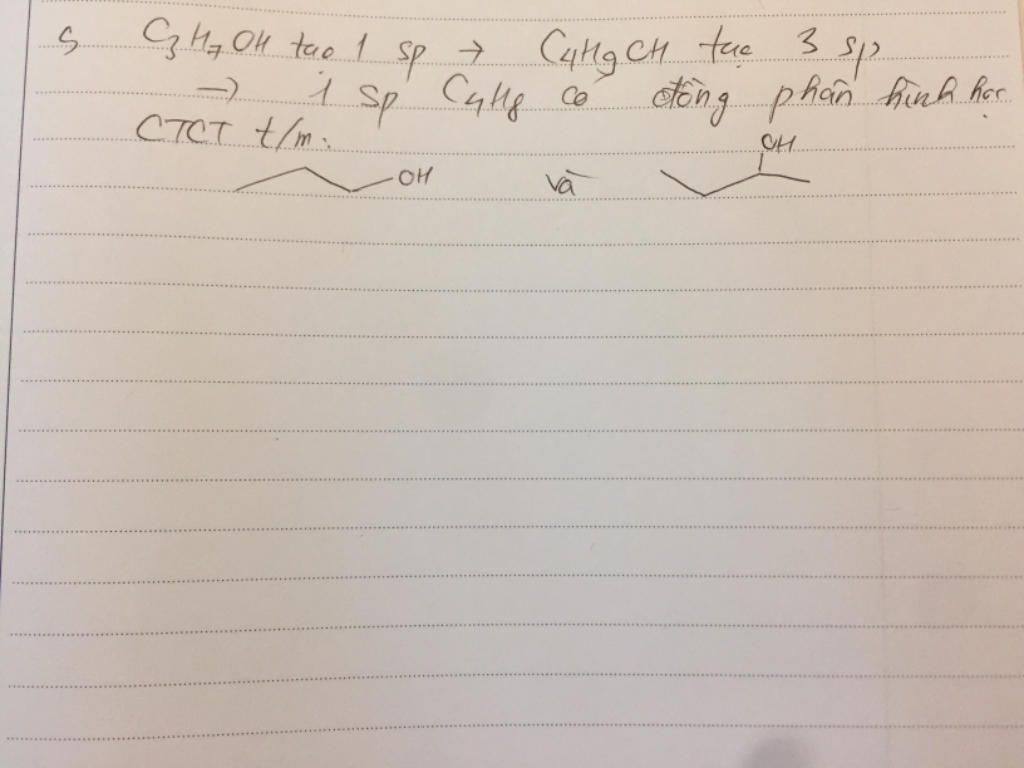 5 C3H7OH tạo 1 sp → C4H9OH tạo 3 sp
→ 1 sp C4H8 có đồng phân hình học
CTCT t/m:
OH và OH